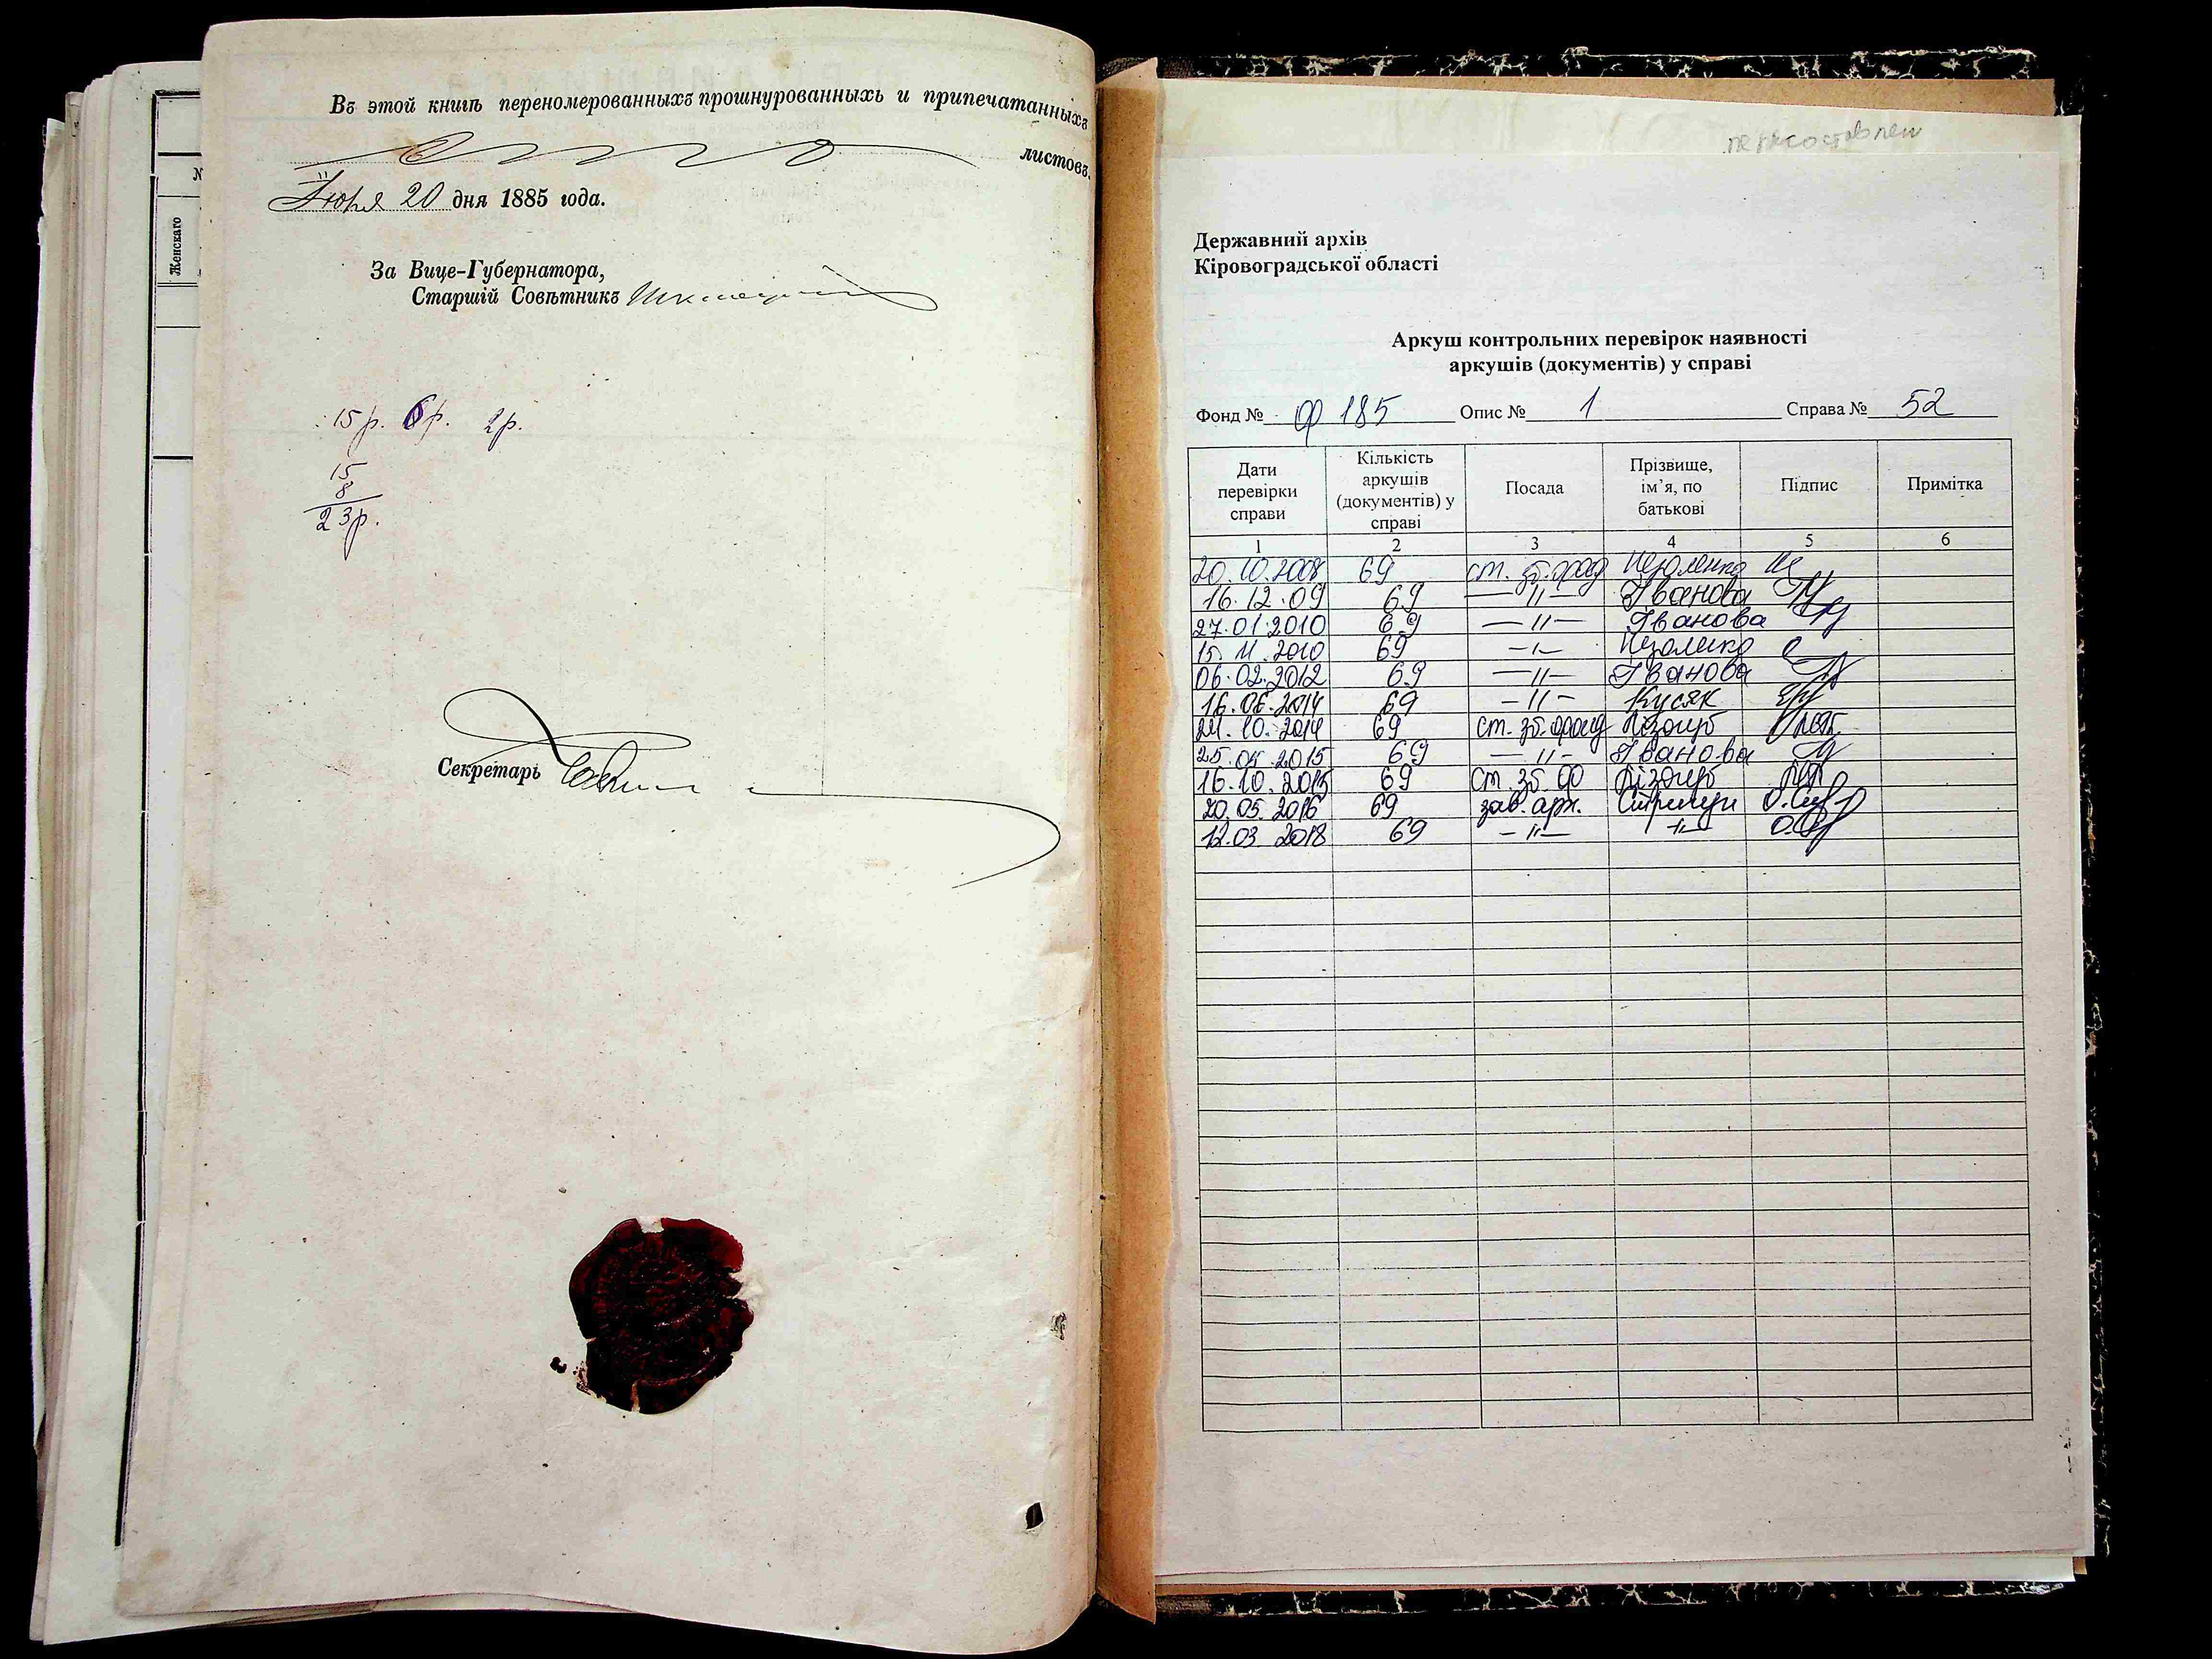 Въ этой книгѣ переномерованныхъ прошнурованныхъ и припечатанныхъ
листовъ.
20 дня 1885 года.
За Вице-Губернатора,
Старшій Совѣтникъ
15 р. 6 р. 2 р.
15
8
23 р.
Секретарь
№
Женскаго
Державний архів
Кіровоградської області
Аркуш контрольних перевірок наявності
аркушів (документів) у справі
Фонд № Ф 185 Опис № 1 Справа № 52
Дати перевірки справи Кількість аркушів (документів) у справі Посада Прізвище, ім’я, по батькові Підпис Примітка
1 2 3 4 5 6
20.10.2008 69 ст. зб. фонд
16.12.09 69 —〃— Іванова
27.01.2010 69 —〃— Іванова
15.11.2010 69 —〃—
06.02.2012 69 —〃— Іванова
16.06.2014 69 —〃— Кусяк
24.10.2014 69 ст. зб. фонд
25.05.2015 69 —〃— Іванова
16.10.2015 69 ст. зб. ф
20.05.2016 69 зав. арх.
12.03.2018 69 —〃— —〃—